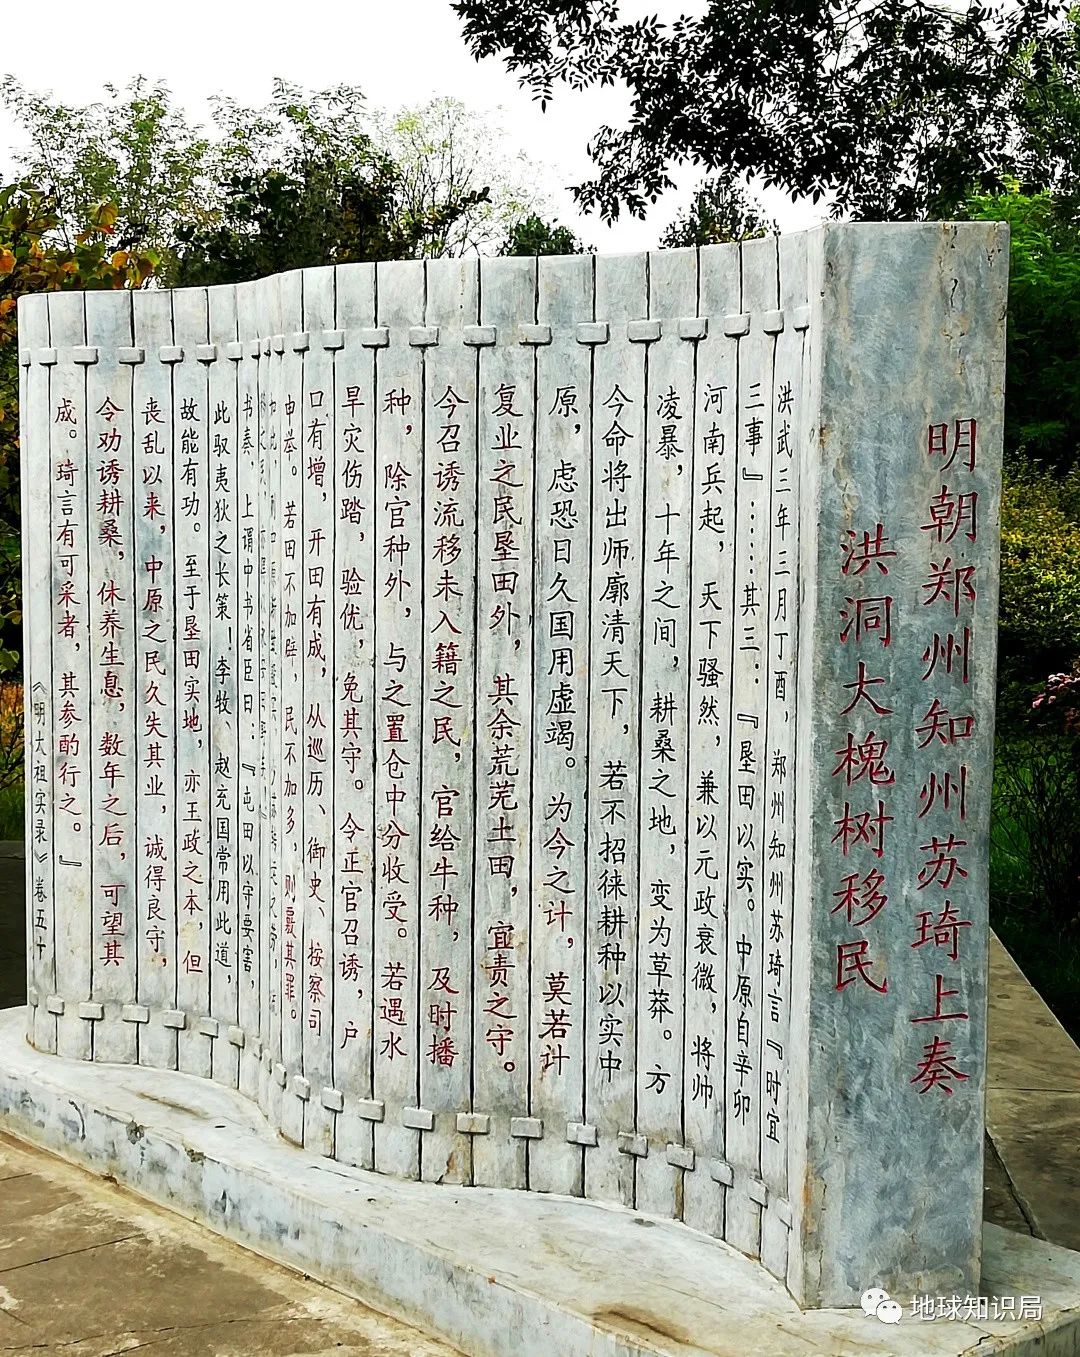 明朝郑州知州苏琦上奏
洪洞大槐树移民
洪武三年三月丁酉，郑州知州苏琦言『时宜
三事』：……其三：『垦田以实。中原自辛卯
河南兵起，天下骚然，兼以元政衰微，将帅
凌暴，十年之间，耕桑之地，变为草莽。方
今命将出师廓清天下，若不招徕耕种以实中
原，虑恐日久国用虚竭。为今之计，莫若计
复业之民垦田外，其余荒芜土田，宜责之守。
今召诱流移未入籍之民，官给牛种，及时播
种，除官种外，与之置仓中分收受。若遇水
旱灾伤踏，验优，免其守。今正官召诱，户
口有增，开田有成，从巡历、御史、按察司
申举。若田不加辟，民不加多，则覈其罪。
书奏，上谓中书省臣曰：『屯田以守要害，
此驭夷狄之长策！李牧、赵充国常用此道，
故能有功。至于垦田实地，亦王政之本，但
丧乱以来，中原之民久失其业，诚得良守，
令劝诱耕桑，休养生息，数年之后，可望其
成。琦言有可采者，其参酌行之。』
《明太祖实录》卷五十
地球知识局